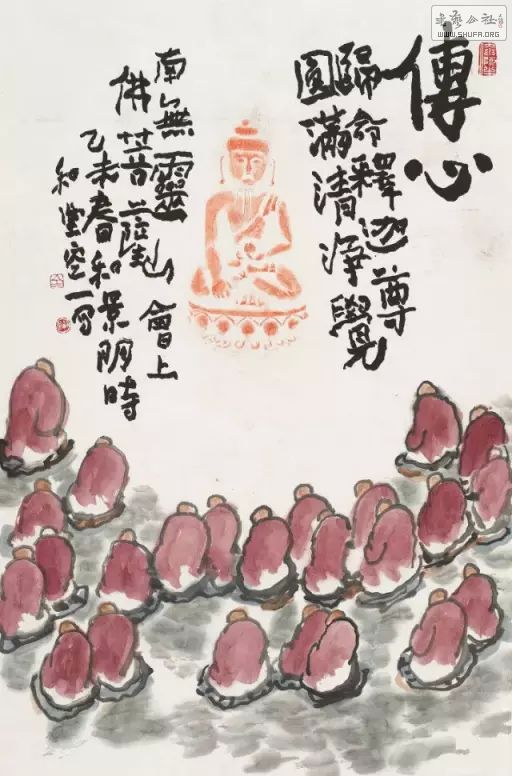 書藝公社
WWW.SHUFA.ORG
傳心
歸命釋迦尊
圓滿清淨覺
南無靈山會上
佛菩薩
乙未春和景明時
和堂空一写